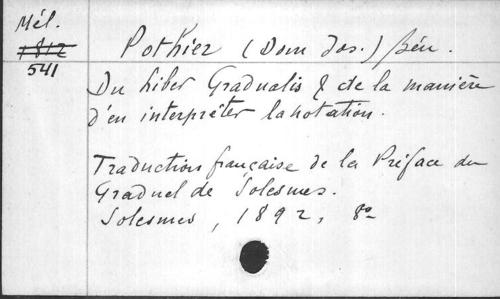 Mél.
1812
541
Pothier (Dom Jos.) Bén.
Du Liber Gradualis & de la manière
d'en interpréter la notation.
Traduction française de la Préface du
Graduel de Solesmes.
Solesmes, 1892, 8º